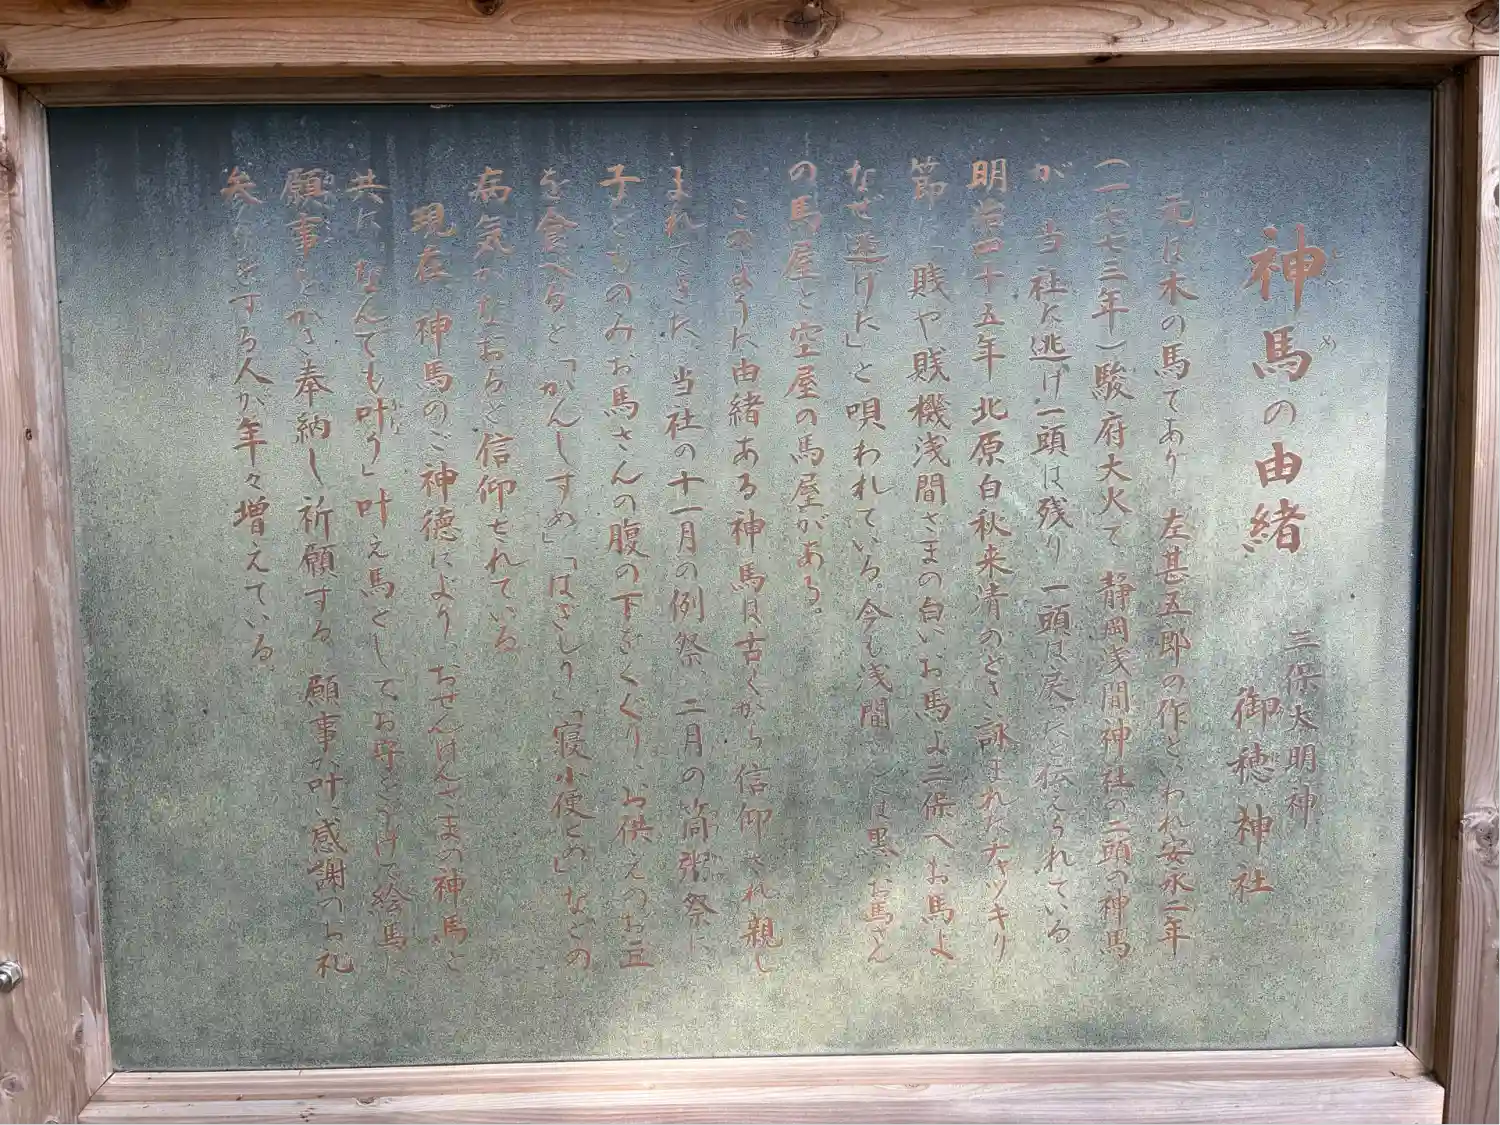 神馬の由緒
三保大明神
御穂神社
元は木の馬であり 左甚五郎の作といわれ安永二年
(一七七三年)駿府大火で 静岡浅間神社の二頭の神馬
が 当社に逃げ一頭は残り 一頭は戻ったと伝えられている。
明治四十五年 北原白秋来清のとき詠まれたチャッキリ
節に「賎や賎機浅間さまの白いお馬よ三保へお馬よ
なぜ逃げた」と唄われている。今も浅間さんは黒いお馬さん
の馬屋と空屋の馬屋がある。
このように由緒ある神馬は古くから信仰され親し
まれてきた、当社の十一月の例祭、二月の筒粥祭に
子どものみお馬さんの腹の下をくぐり、お供えのお豆
を食べると「かんしずめ」「はぎしり」「寝小便どめ」などの
病気がなおると信仰されている
現在 神馬のご神徳により、おせんげんさまの神馬と
共に「なんでも叶う」叶え馬としてお守をうけて絵馬に
願事をかき奉納し祈願する 願事が叶い感謝のお礼
矢をする人が年々増えている